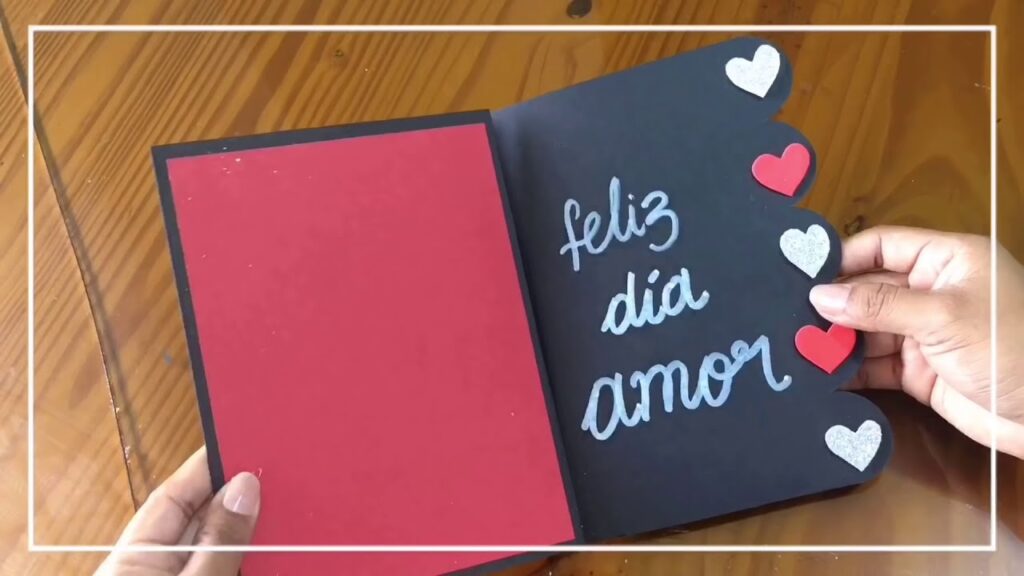 feliz
día
amor